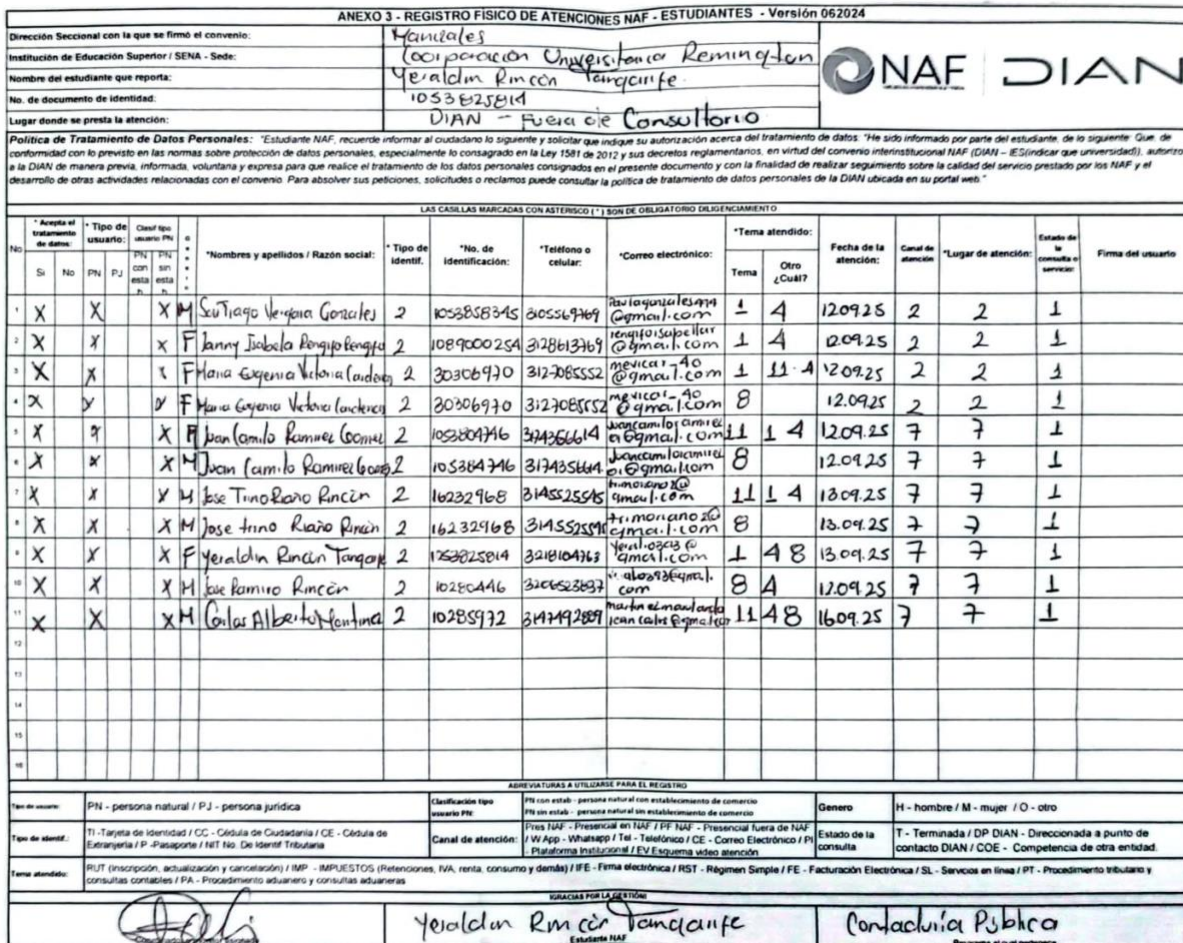 ANEXO 3 - REGISTRO FÍSICO DE ATENCIONES NAF - ESTUDIANTES - Versión 062024
Dirección Seccional con la que se firmó el convenio: Manizales
Institución de Educación Superior / SENA - Sede: Coorporación Universitaria Remington
Nombre del estudiante que reporta: Yeraldin Rincón Tangarife
No. de documento de identidad: 1053825814
Lugar donde se presta la atención: DIAN - Fuera de Consultorio
NAF DIAN
Política de Tratamiento de Datos Personales: "Estudiante NAF, recuerde informar al ciudadano lo siguiente y solicitar que indique su autorización acerca del tratamiento de datos. "He sido informado por parte del estudiante, de lo siguiente: Que, de
conformidad con lo previsto en las normas sobre protección de datos personales, especialmente lo consagrado en la Ley 1581 de 2012 y sus decretos reglamentarios, en virtud del convenio interinstitucional NAF (DIAN – IES(indicar que universidad)), autorizo
a la DIAN de manera previa, informada, voluntaria y expresa para que realice el tratamiento de los datos personales consignados en el presente documento y con la finalidad de realizar seguimiento sobre la calidad del servicio prestado por los NAF y el
desarrollo de otras actividades relacionadas con el convenio. Para absolver sus peticiones, solicitudes o reclamos puede consultar la política de tratamiento de datos personales de la DIAN ubicada en su portal web."
LAS CASILLAS MARCADAS CON ASTERISCO ( * ) SON DE OBLIGATORIO DILIGENCIAMIENTO
No * Acepta el tratamiento de datos: Si No * Tipo de usuario: PN PJ Clasif tipo usuario PN PN con estab PN sin estab *Nombres y apellidos / Razón social: * Tipo de identif. *No. de identificación: *Teléfono o celular: *Correo electrónico: *Tema atendido: Tema Otro ¿Cuál? Fecha de la atención: Canal de atención *Lugar de atención: Estado de la consulta o servicio: Firma del usuario
1 X X X M Santiago Vergara Gonzales 2 1053858345 3105569769 @gmail.com 1 4 12.09.25 2 2 1
2 X X X F Janny Isabela Rengifo Rengifo 2 1089000254 3128613769 @gmail.com 1 4 12.09.25 2 2 1
3 X X X F Maria Eugenia Victoria Cardenas 2 30306970 3127085552 mevicar-40 @gmail.com 1 11-4 12.09.25 2 2 1
4 X X X F Maria Eugenia Victoria Cardenas 2 30306970 3127085552 mevicar-40 @gmail.com 8 12.09.25 2 2 1
5 X X X Juan Camilo Ramirez Gomez 2 1053804746 11 1 4 12.09.25 7 7 1
6 X X X M Juan Camilo Ramirez Gomez 2 105384746 8 12.09.25 7 7 1
7 X X X M Jose Trino Riaño Rincón 2 16232968 gmail.com 11 1 4 13.09.25 7 7 1
8 X X X M Jose trino Riaño Rincón 2 16232968 gmail.com 8 13.09.25 7 7 1
9 X X X F Yeraldin Rincón Tangarife 2 3218104763 gmail.com 1 4 8 13.09.25 7 7 1
10 X X X M Jose Ramiro Rincón 2 10280446 8 4 12.09.25 7 7 1
11 X X X M Carlos Alberto 2 10285972 11 4 8 16.09.25 7 7 1
12
13
14
15
16
ABREVIATURAS A UTILIZARSE PARA EL REGISTRO
Tipo de usuario: PN - persona natural / PJ - persona jurídica Clasificación tipo usuario PN: PN con estab - persona natural con establecimiento de comercio PN sin estab - persona natural sin establecimiento de comercio Genero H - hombre / M - mujer / O - otro
Tipo de identif.: TI -Tarjeta de Identidad / CC - Cédula de Ciudadanía / CE - Cédula de Extranjería / P -Pasaporte / NIT No. De Identif Tributaria Canal de atención: Pres NAF - Presencial en NAF / PF NAF - Presencial fuera de NAF / W App - Whatsapp / Tel - Telefónico / CE - Correo Electrónico / PI - Plataforma Institucional / EV Esquema video atención Estado de la consulta T - Terminada / DP DIAN - Direccionada a punto de contacto DIAN / COE - Competencia de otra entidad.
Tema atendido: RUT (Inscripción, actualización y cancelación) / IMP - IMPUESTOS (Retenciones, IVA, renta, consumo y demás) / IFE - Firma electrónica / RST - Régimen Simple / FE - Facturación Electrónica / SL - Servicios en línea / PT - Procedimiento tributario y
consultas contables / PA - Procedimiento aduanero y consultas aduaneras
¡GRACIAS POR LA GESTIÓN!
Yeraldin Rincón Tangarife Contaduría Pública
Estudiante NAF